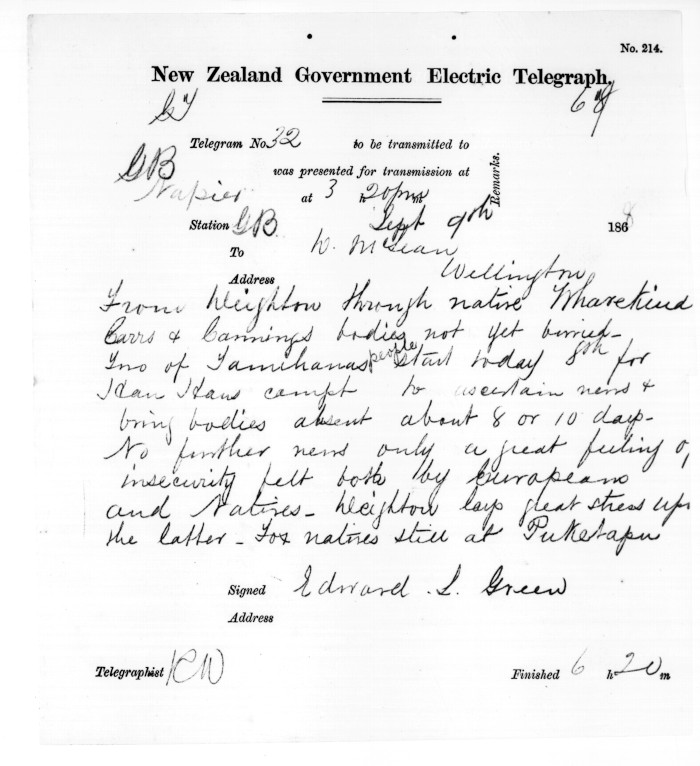 No. 214.
New Zealand Government Electric Telegraph.
Telegram No. 32 to be transmitted to
GB was presented for transmission at
Remarks.
Napier at 3 h 20 pm m
Station GB. Sept 9th 1868
To D. McLean
Address Wellington
From Deighton through native Wharekino
Carrs & Cannings bodies not yet burried -
Two of Tamihanas people start today 8th for
Hau Haus campt to ascertain news &
bring bodies absent about 8 or 10 days -
No further news only a great feeling of
insecurity felt both by Europeans
and Natives - Deighton lays great stress upon
the latter - natives still at Puketapu
Signed Edward. S. Green
Address
Telegraphist Finished 6 h 20 m